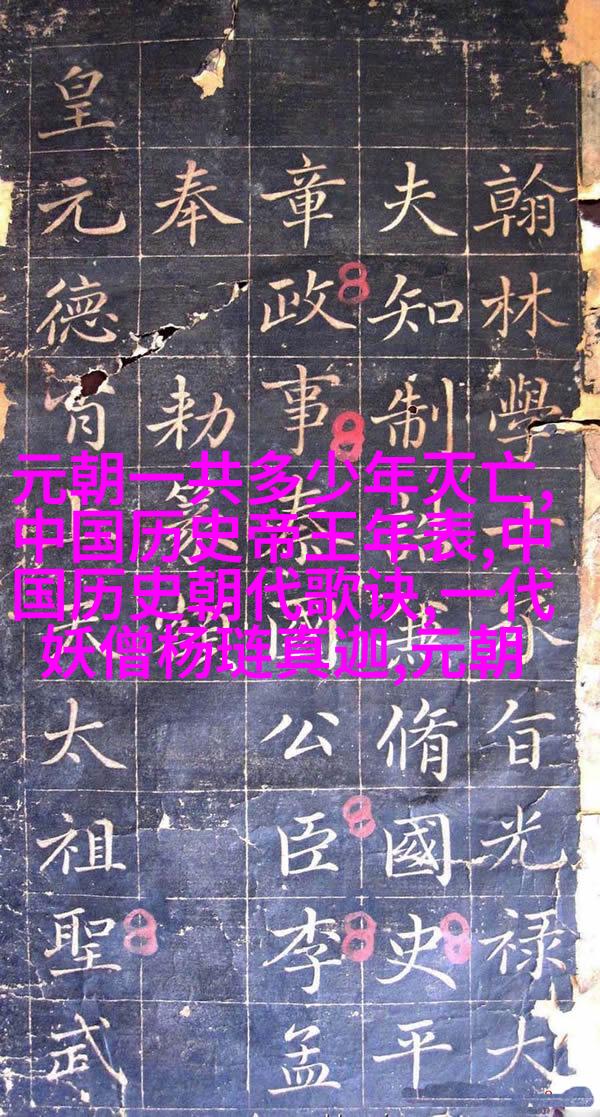 元朝一共多少年灭亡,
中国历史帝王年表,中
国历史朝代歌诀,一代
妖僧杨琏真迦,元朝
翰林學士承旨光禄大
夫知制誥兼脩國史平
章政事秦國公臣李孟
奉勅篆
皇元德太祖聖武